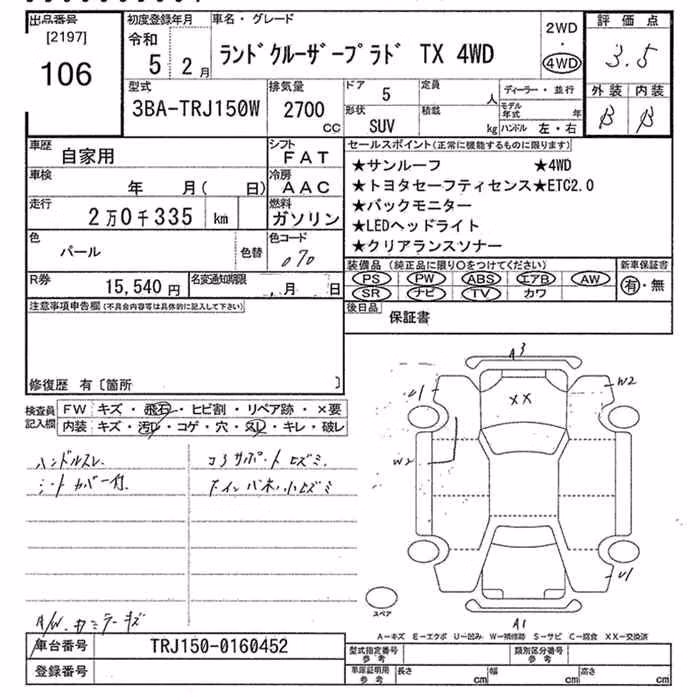 出品番号
[2197]
106
初度登録年月
令和
5 2月
車名・グレード
ランドクルーザープラド TX 4WD
2WD
・
4WD
評価点
3.5
外装 内装
B B
型式
3BA-TRJ150W
排気量
2700
cc
ドア
5
定員
人
形状
SUV
積載
kg
ディーラー・並行
モデル年式 年
ハンドル 左・右
車歴
自家用
シフト
FAT
車検
年 月( 日)
冷房
AAC
走行
2万0千335 km
燃料
ガソリン
色
パール
色替
色コード
070
R券
15,540円
名変通知期限
月 日
セールスポイント(正常に機能するものに限ります)
★サンルーフ ★4WD
★トヨタセーフティセンス★ETC2.0
★バックモニター
★LEDヘッドライト
★クリアランスソナー
装備品 (純正品に限り○をつけてください)
PS PW ABS エアB AW
SR ナビ TV カワ
新車保証書
有・無
後日品
保証書
注意事項申告欄(不具合内容等は具体的に記入して下さい)
修復歴 有〔箇所 〕
検査員記入欄
FW キズ・飛石・ヒビ割・リペア跡・×要
内装 キズ・汚レ・コゲ・穴・スレ・キレ・破レ
ハンドルスレ
シートカバー付
コアサポートヒズミ
A/W.カミラーキズ
A3
U1
W2
XX
W2
U1
A1
スペア
A-キズ E-エクボ U-凹み W-補修跡 S-サビ C-腐食 XX-交換済
車台番号
TRJ150-0160452
登録番号
型式指定番号
参考
類別区分番号
参考
車庫証明用
参考
長さ cm
幅 cm
高さ cm